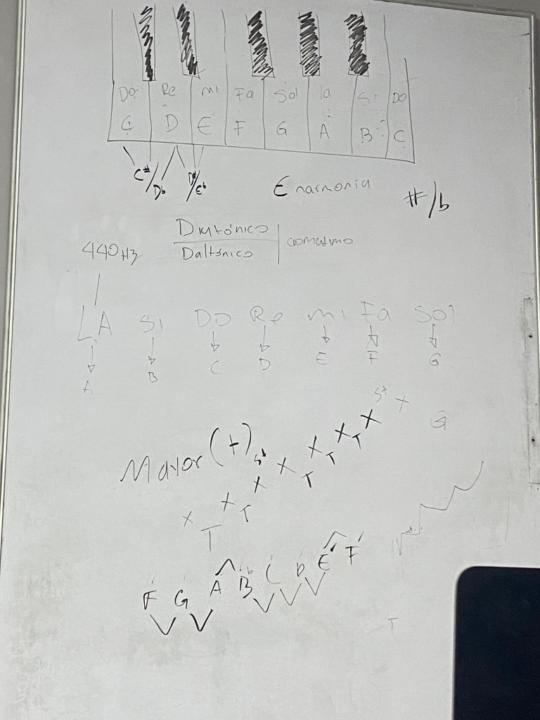 Do Re mi Fa Sol la Si Do
C D E F G A B C
C#/Db D#/Eb Enarmonia #/b
Diatónico
Daltónico
440Hz
LA Si DO Re mi Fa Sol
A B C D E F G
Mayor (+)
x T x T x St x T x T x T x St x
G
F G A Bb C D E F
T